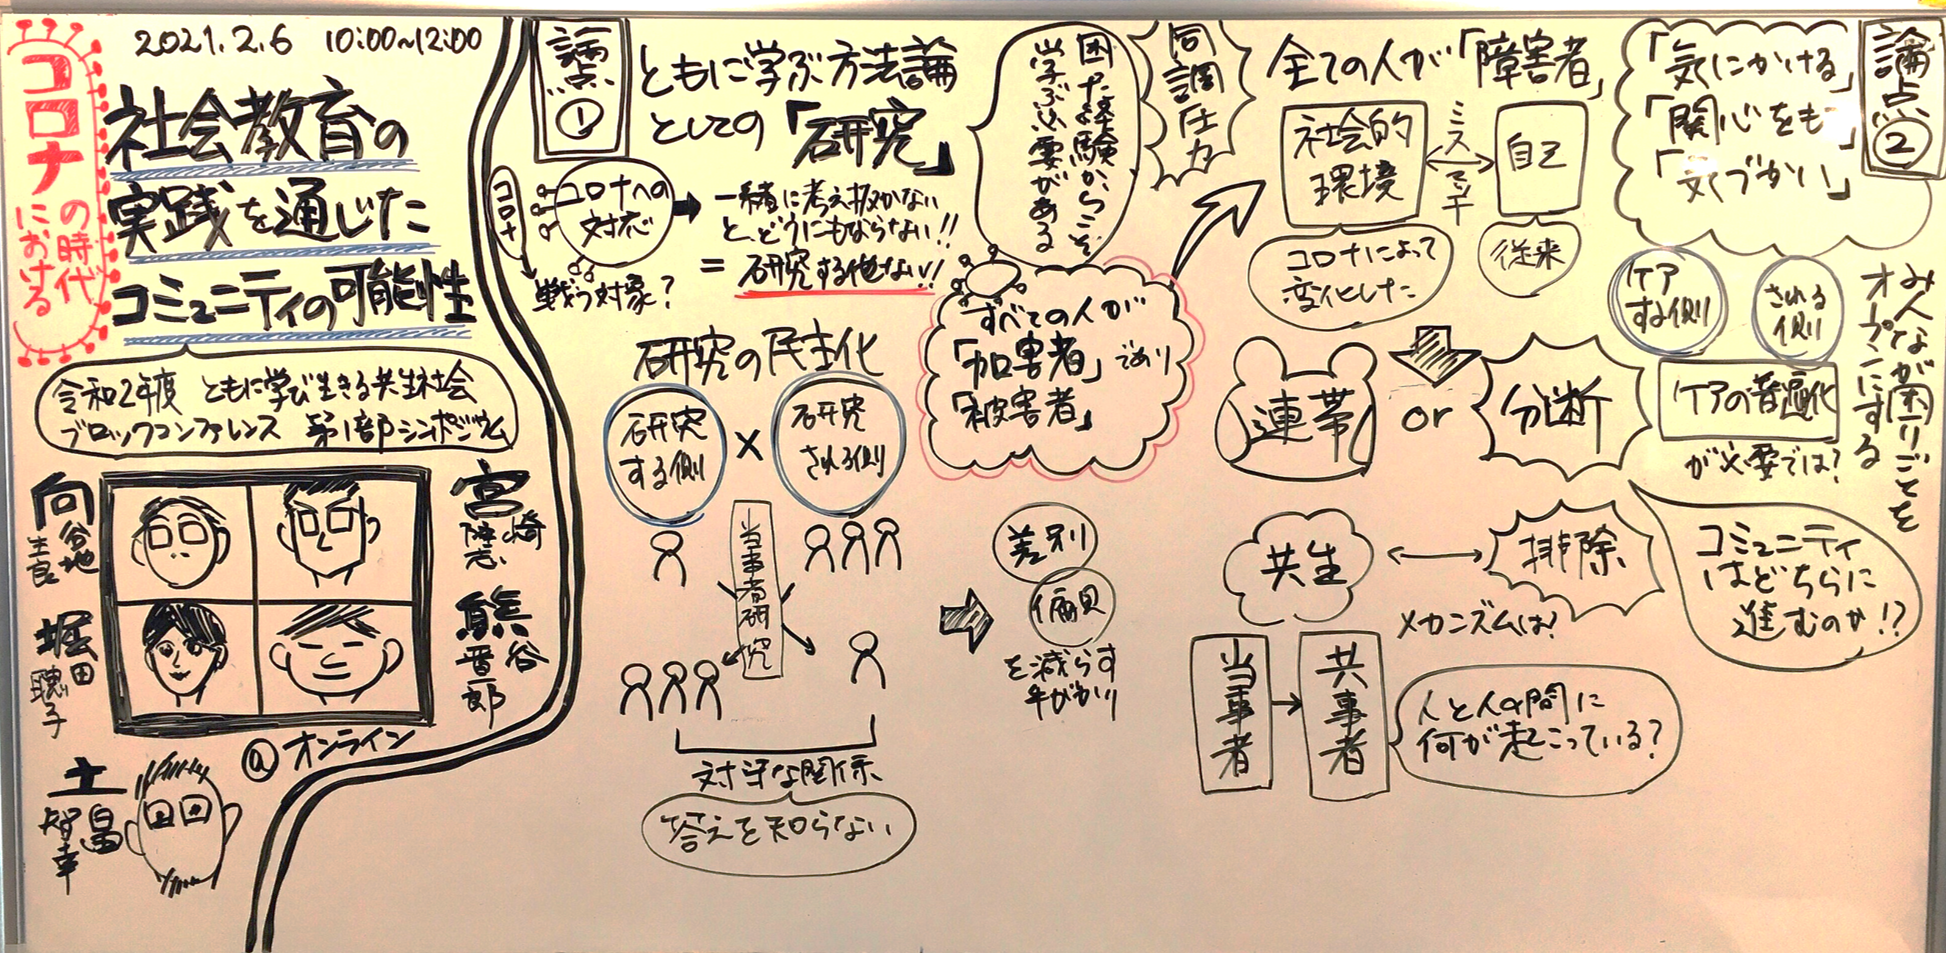 2021.2.6 10:00~12:00
コロナの時代
における
社会教育の
実践を通じた
コミュニティの可能性
令和2年度 ともに学び生きる共生社会
ブロックコンファレンス 第1部シンポジウム
向谷地
生良
宮崎
隆志
堀田
聰子
熊谷
晋一郎
@オンライン
土畠
智幸
論点
①
ともに学ぶ方法論
としての「研究」
コロナ
コロナへの
対応
戦う対象?
一緒に考え抜かない
と、どうにもならない!!
= 研究する他ない!!
研究の民主化
研究
する側
×
研究
される側
当事者研究
対等な関係
答えを知らない
差別
偏見
を減らす
手がかり
困った経験からこそ
学ぶ必要がある
同調圧力
すべての人が
「加害者」であり
「被害者」
全ての人が「障害者」
社会的
環境
ミスマッチ
自己
コロナによって
変化した
従来
連帯
or
分断
共生
排除
メカニズムは?
当事者
共事者
人と人の間に
何が起こっている?
論点
②
「気にかける」
「関心をもつ」
「気づかい」
ケア
する側
される
側
ケアの普遍化
が必要では?
みんなが困りごとを
オープンにする
コミュニティ
はどちらに
進むのか!?